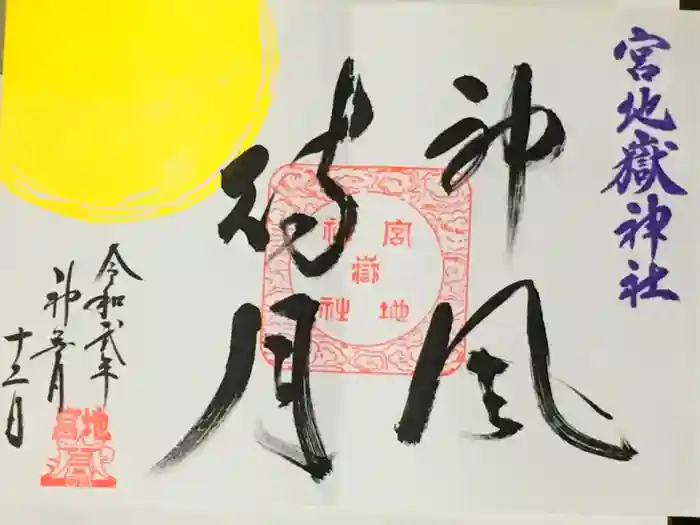 宮地嶽神社
神風
待月
宮地嶽神社
令和弐年
神無月
十三月
宮地